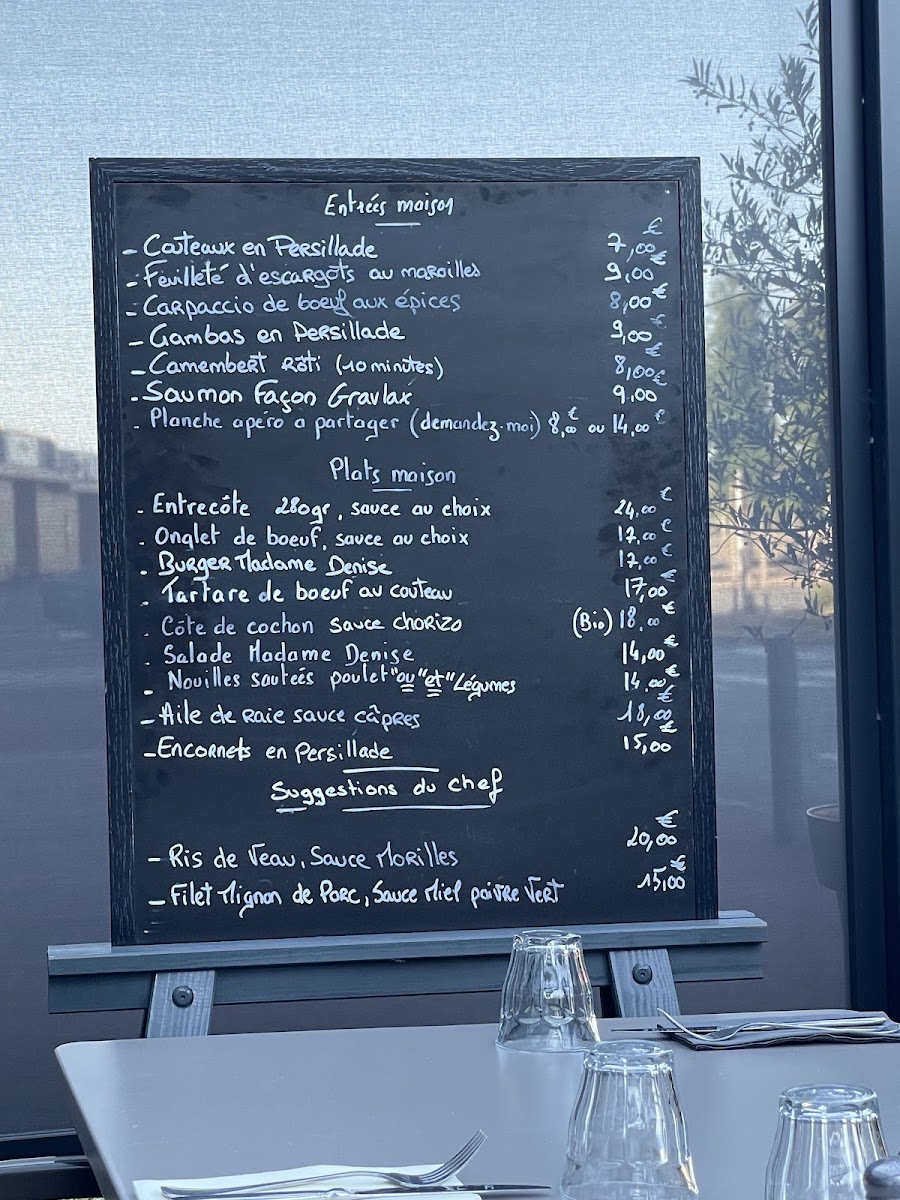 Entrées maison
- Couteaux en Persillade 7,00€
- Feuilleté d'escargots au maroilles 9,00€
- Carpaccio de boeuf aux épices 8,00€
- Gambas en Persillade 9,00€
- Camembert Rôti (10 minutes) 8,00€
- Saumon Façon Gravlax 9,00€
- Planche apéro a partager (demandez-moi) 8,00€ ou 14,00€
Plats maison
- Entrecôte 280gr, sauce au choix 24,00€
- Onglet de boeuf, sauce au choix 17,00€
- Burger Madame Denise 17,00€
- Tartare de boeuf au couteau 17,00€
- Côte de cochon sauce chorizo (Bio) 18,00€
- Salade Madame Denise 14,00€
- Nouilles sautées poulet "ou" "et" Légumes 14,00€
- Aile de raie sauce câpres 18,00€
- Encornets en Persillade 15,00€
Suggestions du chef
- Ris de Veau, Sauce Morilles 20,00€
- Filet Mignon de Porc, Sauce Miel poivre Vert 15,00€